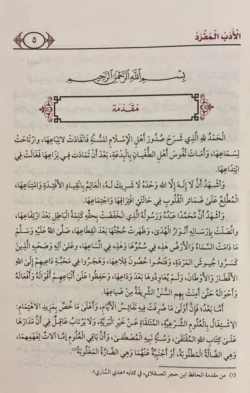 الْأَدَبُ الْمُفْرَدُ
٥
بِسْمِ اللَّهِ الرَّحْمَنِ الرَّحِيمِ
مُقَدِّمَة
الْحَمْدُ للهِ الَّذِي شَرَحَ صُدُورَ أَهْلِ الْإِسْلَامِ لِلسُّنَّةِ فَانْقَادَتْ لِاتِّبَاعِهَا، وَارْتَاحَتْ
لِسَمَاعِهَا، وَأَمَاتَ نُفُوسَ أَهْلِ الطُّغْيَانِ بِالْبِدْعَةِ، بَعْدَ أَنْ تَمَادَتْ فِي نِزَاعِهَا فَغَالَتْ فِي
ابْتِدَاعِهَا.
وَأَشْهَدُ أَنْ لَا إِلَهَ إِلَّا اللهُ وَحْدَهُ لَا شَرِيكَ لَهُ، الْعَالِمُ بِانْقِيَادِ الْأَفْئِدَةِ وَامْتِنَاعِهَا،
الْمُطَّلِعُ عَلَى ضَمَائِرِ الْقُلُوبِ فِي حَالَتَيِ افْتِرَاقِهَا وَاجْتِمَاعِهَا.
وَأَشْهَدُ أَنَّ مُحَمَّدًا عَبْدُهُ وَرَسُولُهُ الَّذِي انْخَفَضَتْ بِحَقِّهِ كَلِمَةُ الْبَاطِلِ بَعْدَ ارْتِفَاعِهَا،
وَاتَّصَلَتْ بِإِرْسَالِهِ أَنْوَارُ الْهُدَى، وَظَهَرَتْ حُجَّتُهَا بَعْدَ انْقِطَاعِهَا، صَلَّى اللهُ عَلَيْهِ وَسَلَّمَ
مَا دَامَتِ السَّمَاءُ وَالْأَرْضُ هَذِهِ فِي سُمُوِّهَا وَهَذِهِ فِي اتِّسَاعِهَا، وَعَلَى آلِهِ وَصَحْبِهِ الَّذِينَ
كَسَرُوا جُيُوشَ الْمَرَدَةِ، وَفَتَحُوا حُصُونَ قِلَاعِهَا، وَهَجَرُوا فِي مَحَبَّةِ دَاعِيهِمْ إِلَى اللهِ
الْأَوْطَارَ وَالْأَوْطَانَ، وَلَمْ يُعَاوِدُوهَا بَعْدَ وَدَاعِهَا، وَحَفِظُوا عَلَى أَتْبَاعِهِمْ أَقْوَالَهُ وَأَفْعَالَهُ
وَأَحْوَالَهُ حَتَّى أَمِنَتْ بِهِمُ السُّنَنُ الشَّرِيفَةُ مِنْ ضَيَاعِهَا.
أَمَّا بَعْدُ، فَإِنَّ أَوْلَى مَا صُرِفَتْ فِيهِ نَفَائِسُ الْأَيَّامِ، وَأَعْلَى مَا خُصَّ بِمَزِيدِ الِاهْتِمَامِ:
الِاشْتِغَالُ بِالْعُلُومِ الشَّرْعِيَّةِ، الْمُتَلَقَّاةِ عَنْ خَيْرِ الْبَرِيَّةِ، وَلَا يَرْتَابُ عَاقِلٌ فِي أَنَّ مَدَارَهَا
عَلَى كِتَابِ اللهِ الْمُقْتَفَى، وَسُنَّةِ نَبِيِّهِ الْمُصْطَفَى، وَأَنَّ بَاقِيَ الْعُلُومِ إِمَّا آلَاتٌ لِفَهْمِهِمَا،
وَهِيَ الضَّالَّةُ الْمَطْلُوبَةُ، أَوْ أَجْنَبِيَّةٌ عَنْهُمَا وَهِيَ الضَّارَّةُ الْمَغْلُوبَةُ
(١) من مقدمة الحافظ ابن حجر العسقلاني، في كتابه «هدي الساري»